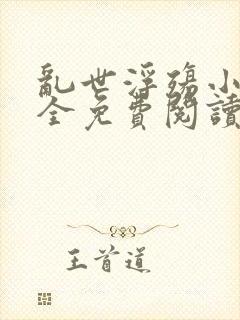 亂世浮殤小
全免費閱讀
王首道